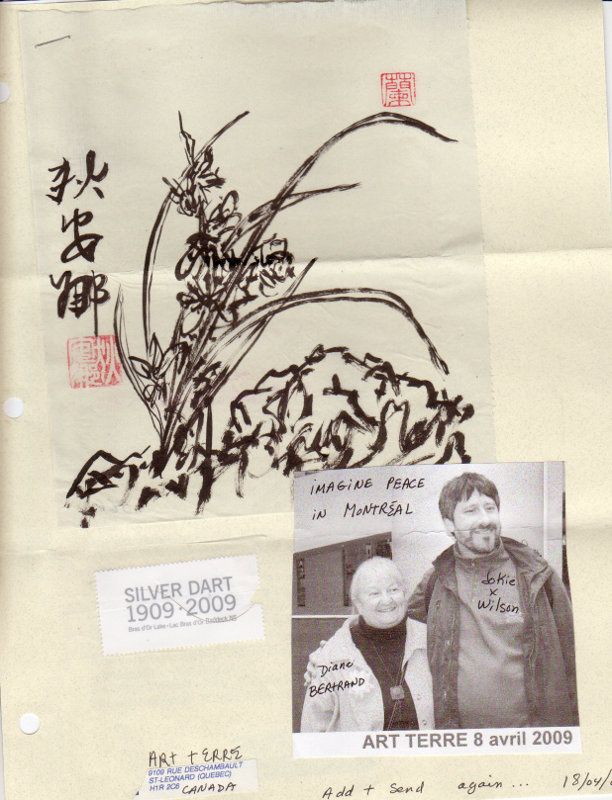 狄安娜
IMAGINE PEACE
IN MONTRÉAL
Jokie
x
Wilson
Diane
BERTRAND
ART TERRE 8 avril 2009
SILVER DART
1909-2009
Bras d'Or Lake • Lac Bras d'Or Baddeck NS
ART TERRE
9109 RUE DESCHAMBAULT
ST-LEONARD (QUEBEC)
H1R 2C6 CANADA
Add + send again... 18/04/